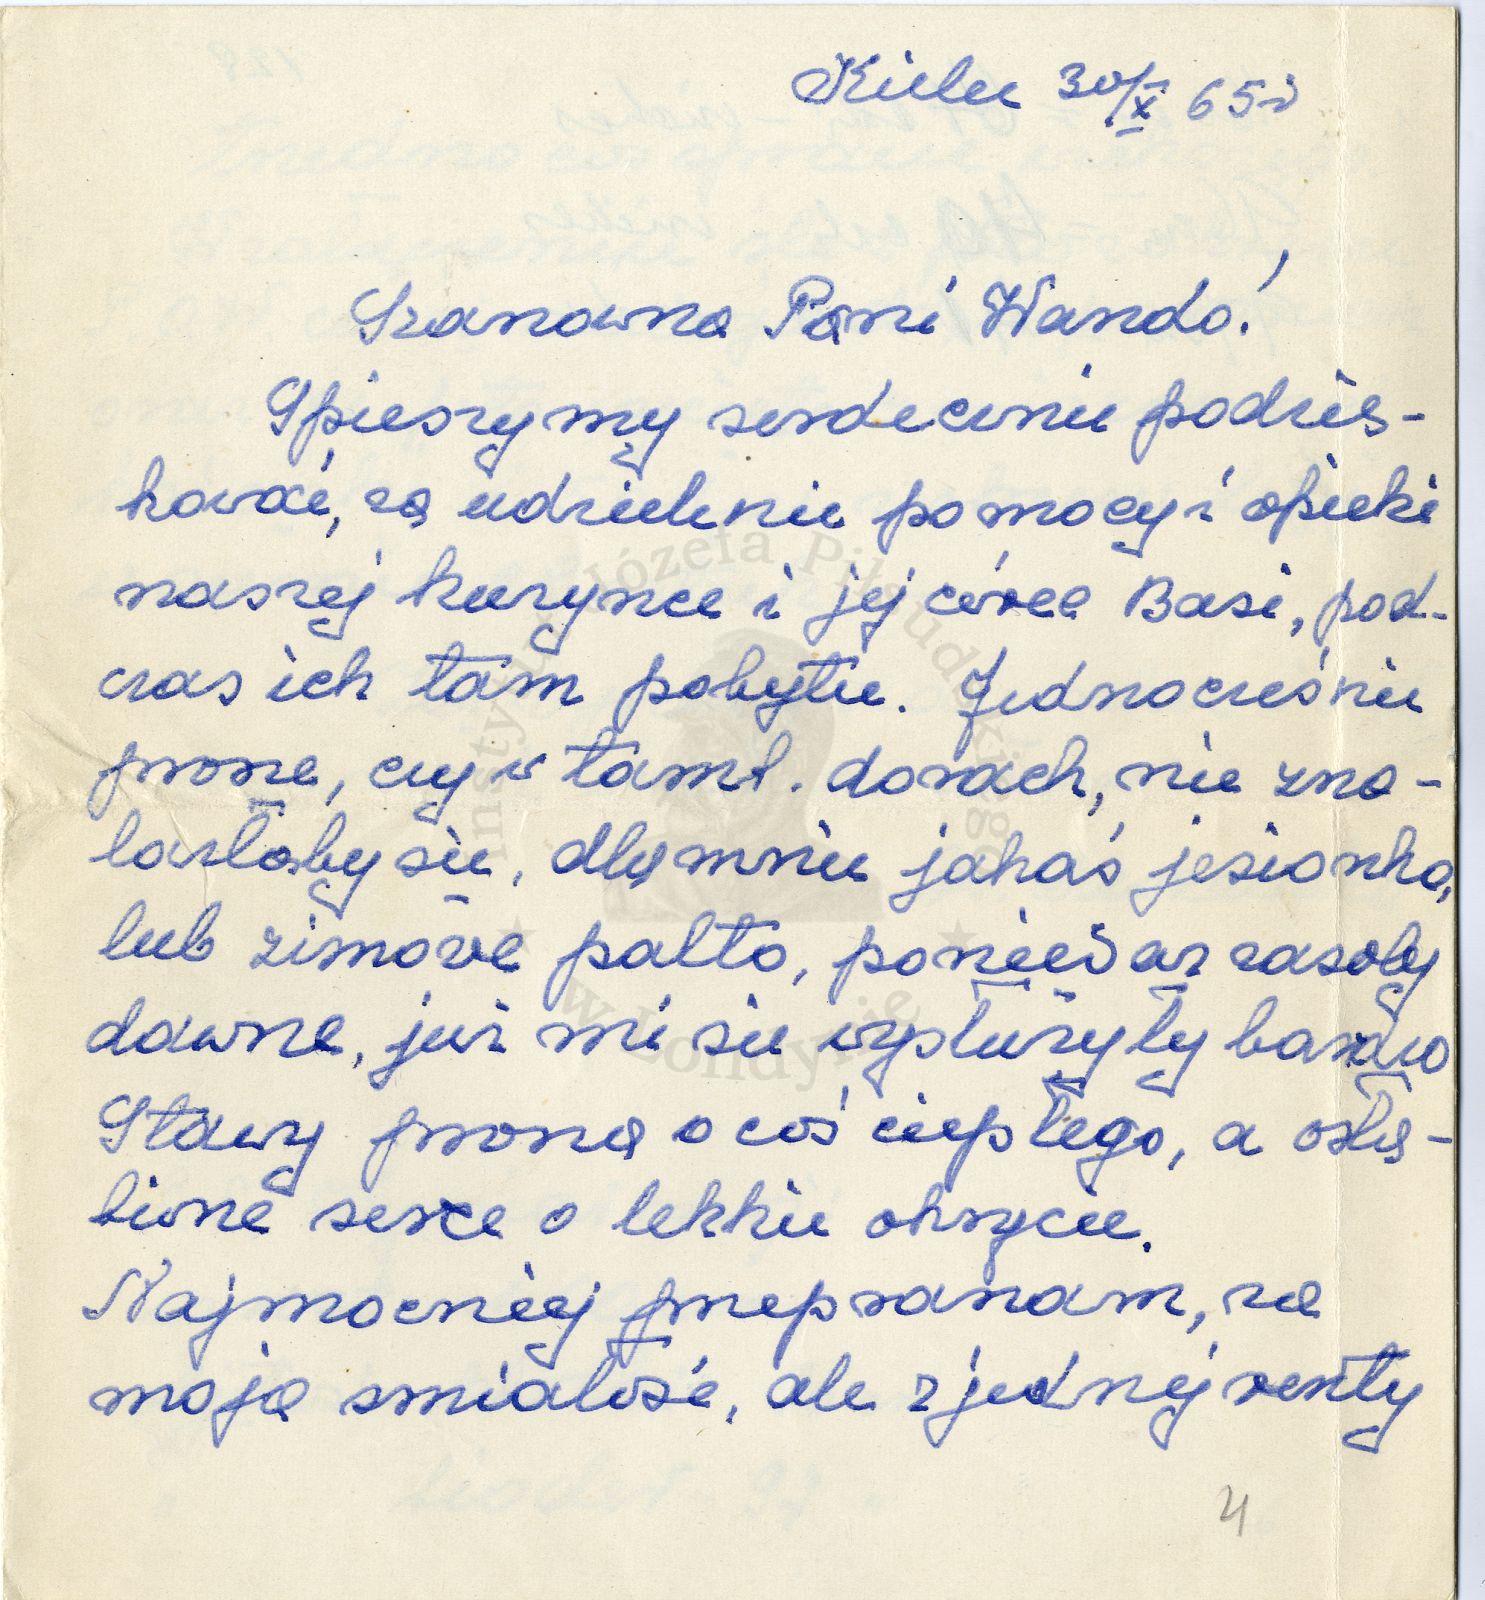 Kielce 30/X 65r
Szanowna Pani Wando!
Spieszymy serdecznie podzię-
kować, za udzielenie pomocy i opieki
naszej kuzynce i jej córce Basi, pod-
czas ich tam pobytu. Jednocześnie
proszę, czy w tamt. darach, nie zna-
lazłaby się, dla mnie jakaś jesionka,
lub zimowe palto, ponieważ zasoby
dawne, już mi się wysłużyły bardzo
Stawy proszą o coś ciepłego, a osła-
bione serce o lekkie okrycie.
Najmocniej przepraszam, za
moją śmiałość, ale z jednej renty
4
Instytut Józefa Piłsudskiego
w Londynie